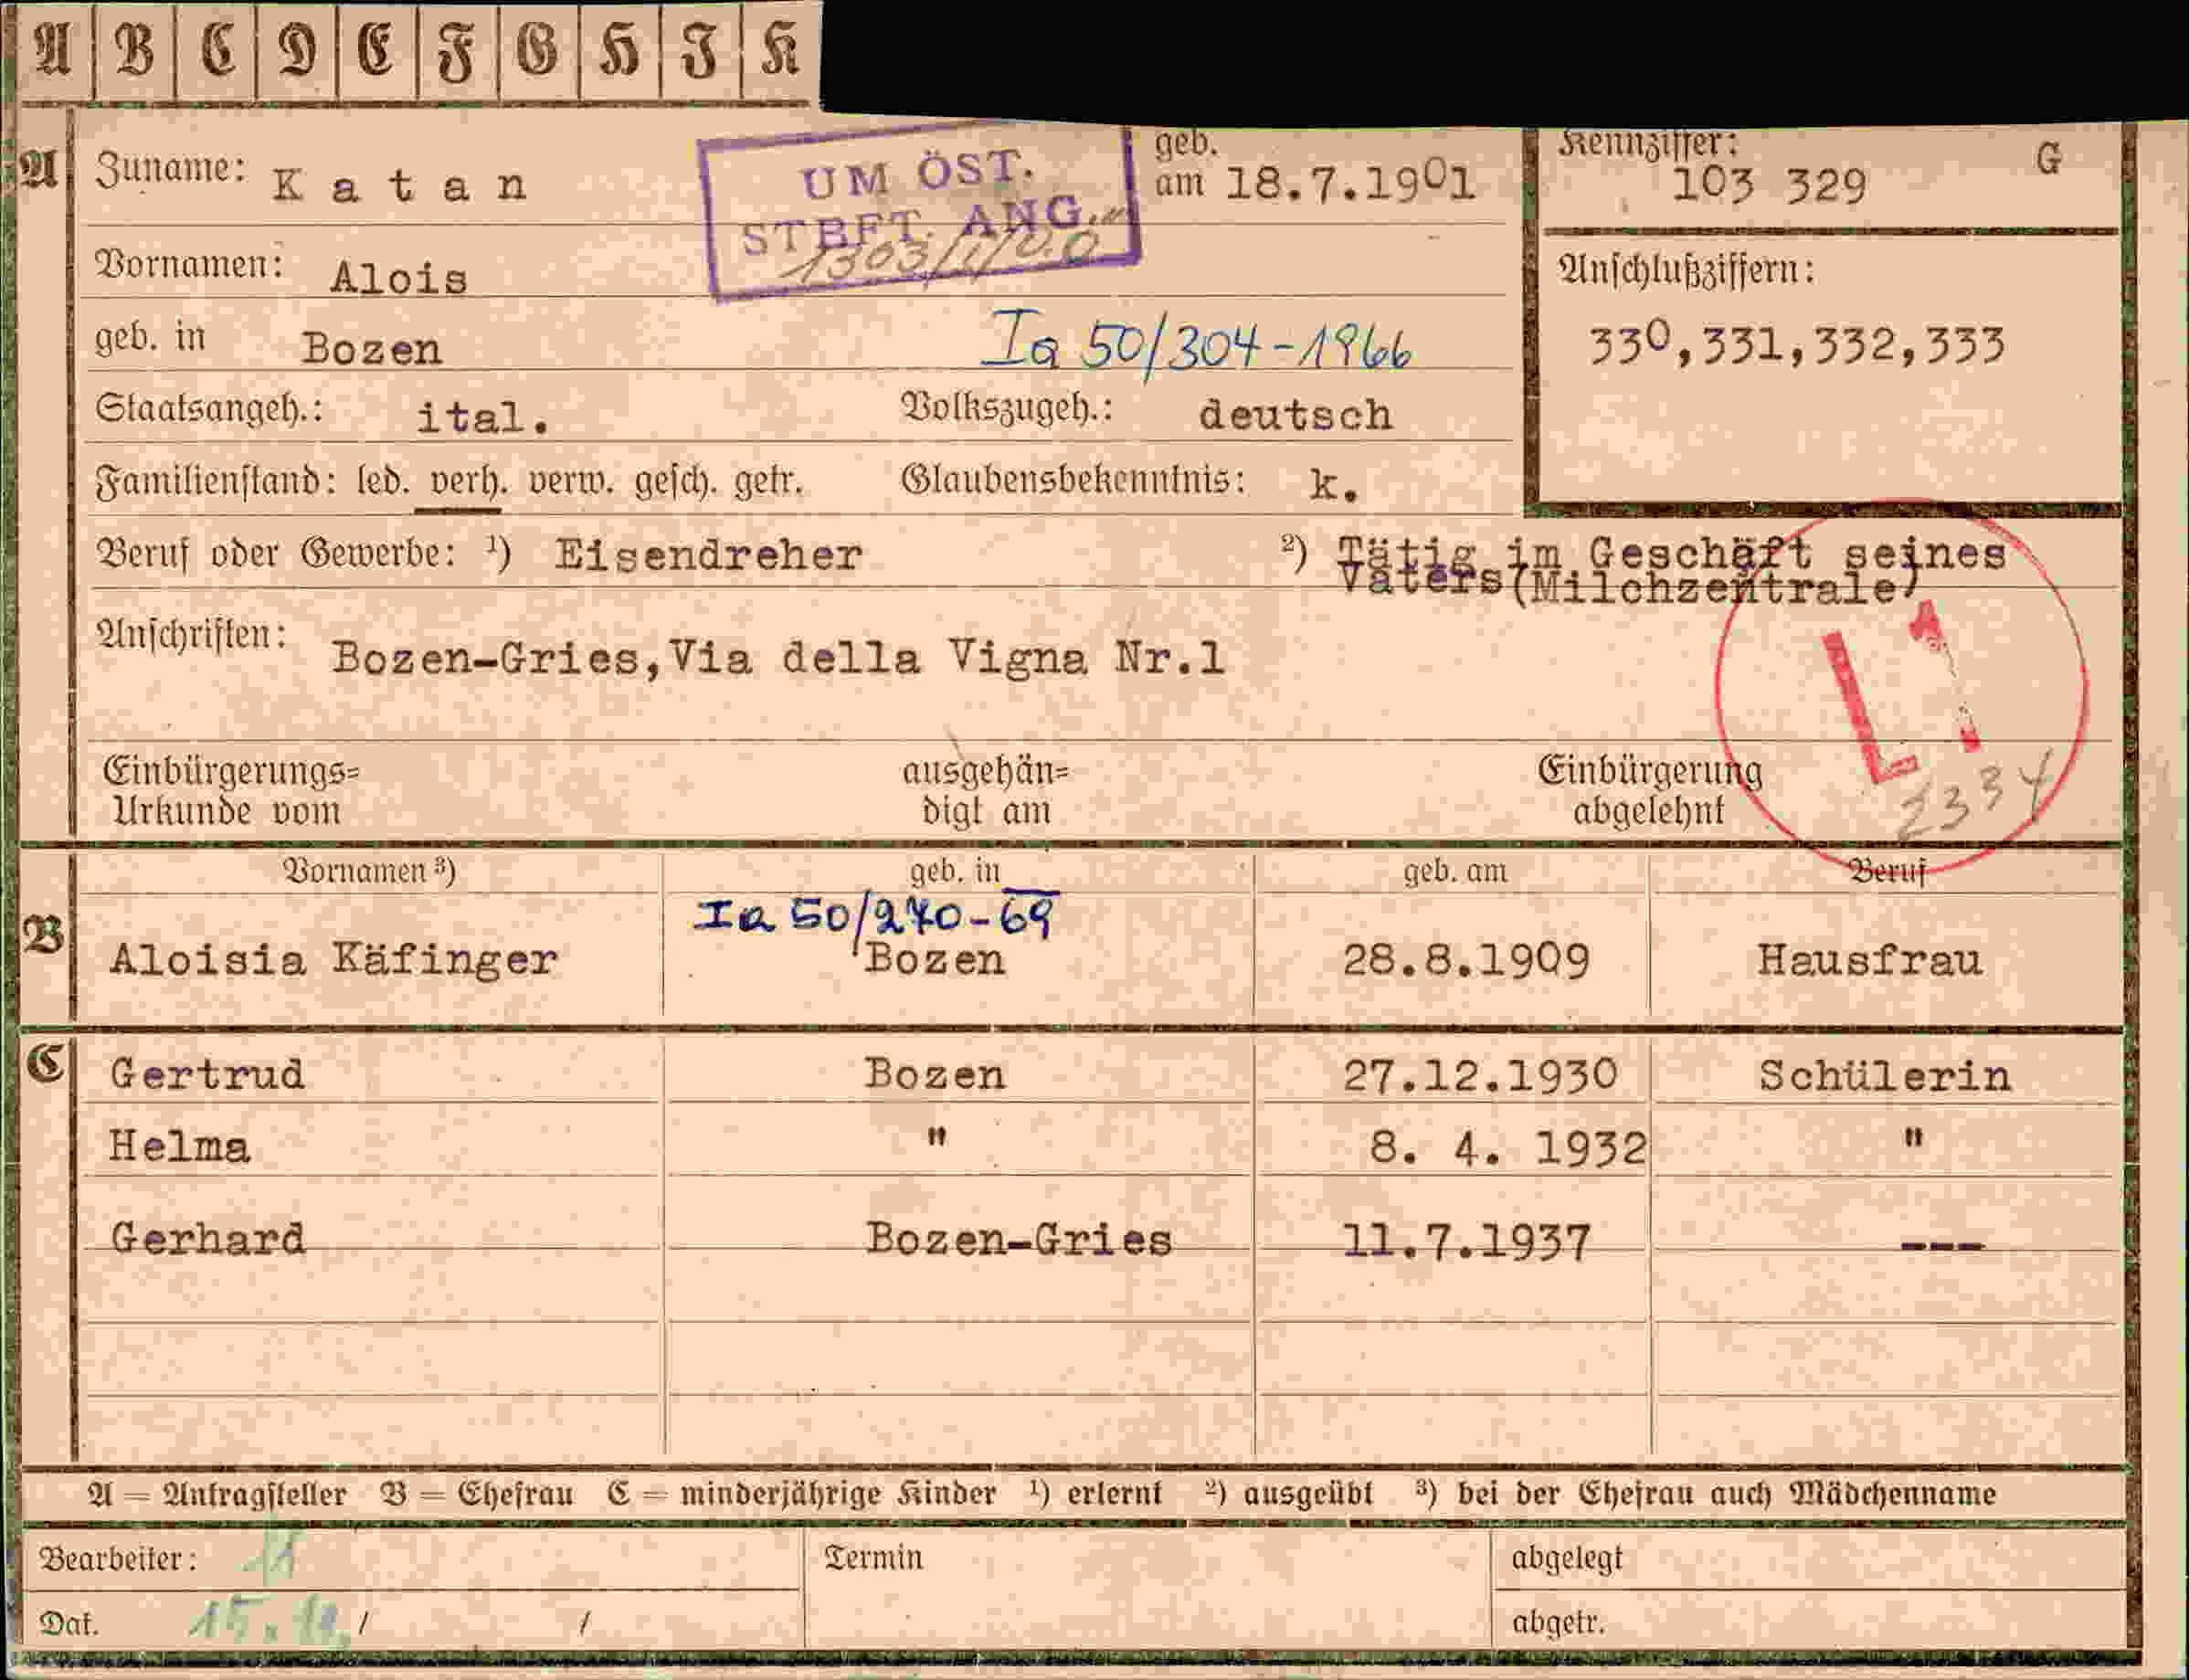 A B C D E F G H J K
A Zuname: Katan
UM ÖST.
STBFT. ANG.
geb.
am 18.7.1901
Kennziffer:
103 329 G
Vornamen: Alois
Anschlußziffern:
geb. in Bozen
Ia 50/304-1966
330,331,332,333
Staatsangeh.: ital. Volkszugeh.: deutsch
Familienstand: led. verh. verw. gesch. getr. Glaubensbekenntnis: k.
Beruf oder Gewerbe: ¹) Eisendreher ²) Tätig im Geschäft seines
Vaters(Milchzentrale)
Anschriften: Bozen-Gries,Via della Vigna Nr.1
Einbürgerungs= ausgehän= Einbürgerung
Urkunde vom digt am abgelehnt
Vornamen ³) geb. in geb. am Beruf
Ia 50/270-69
B Aloisia Käfinger Bozen 28.8.1909 Hausfrau
C Gertrud Bozen 27.12.1930 Schülerin
Helma " 8. 4. 1932 "
Gerhard Bozen-Gries 11.7.1937 ---
A = Antragsteller B = Ehefrau C = minderjährige Kinder ¹) erlernt ²) ausgeübt ³) bei der Ehefrau auch Mädchenname
Bearbeiter: Termin abgelegt
Dat. / / abgetr.